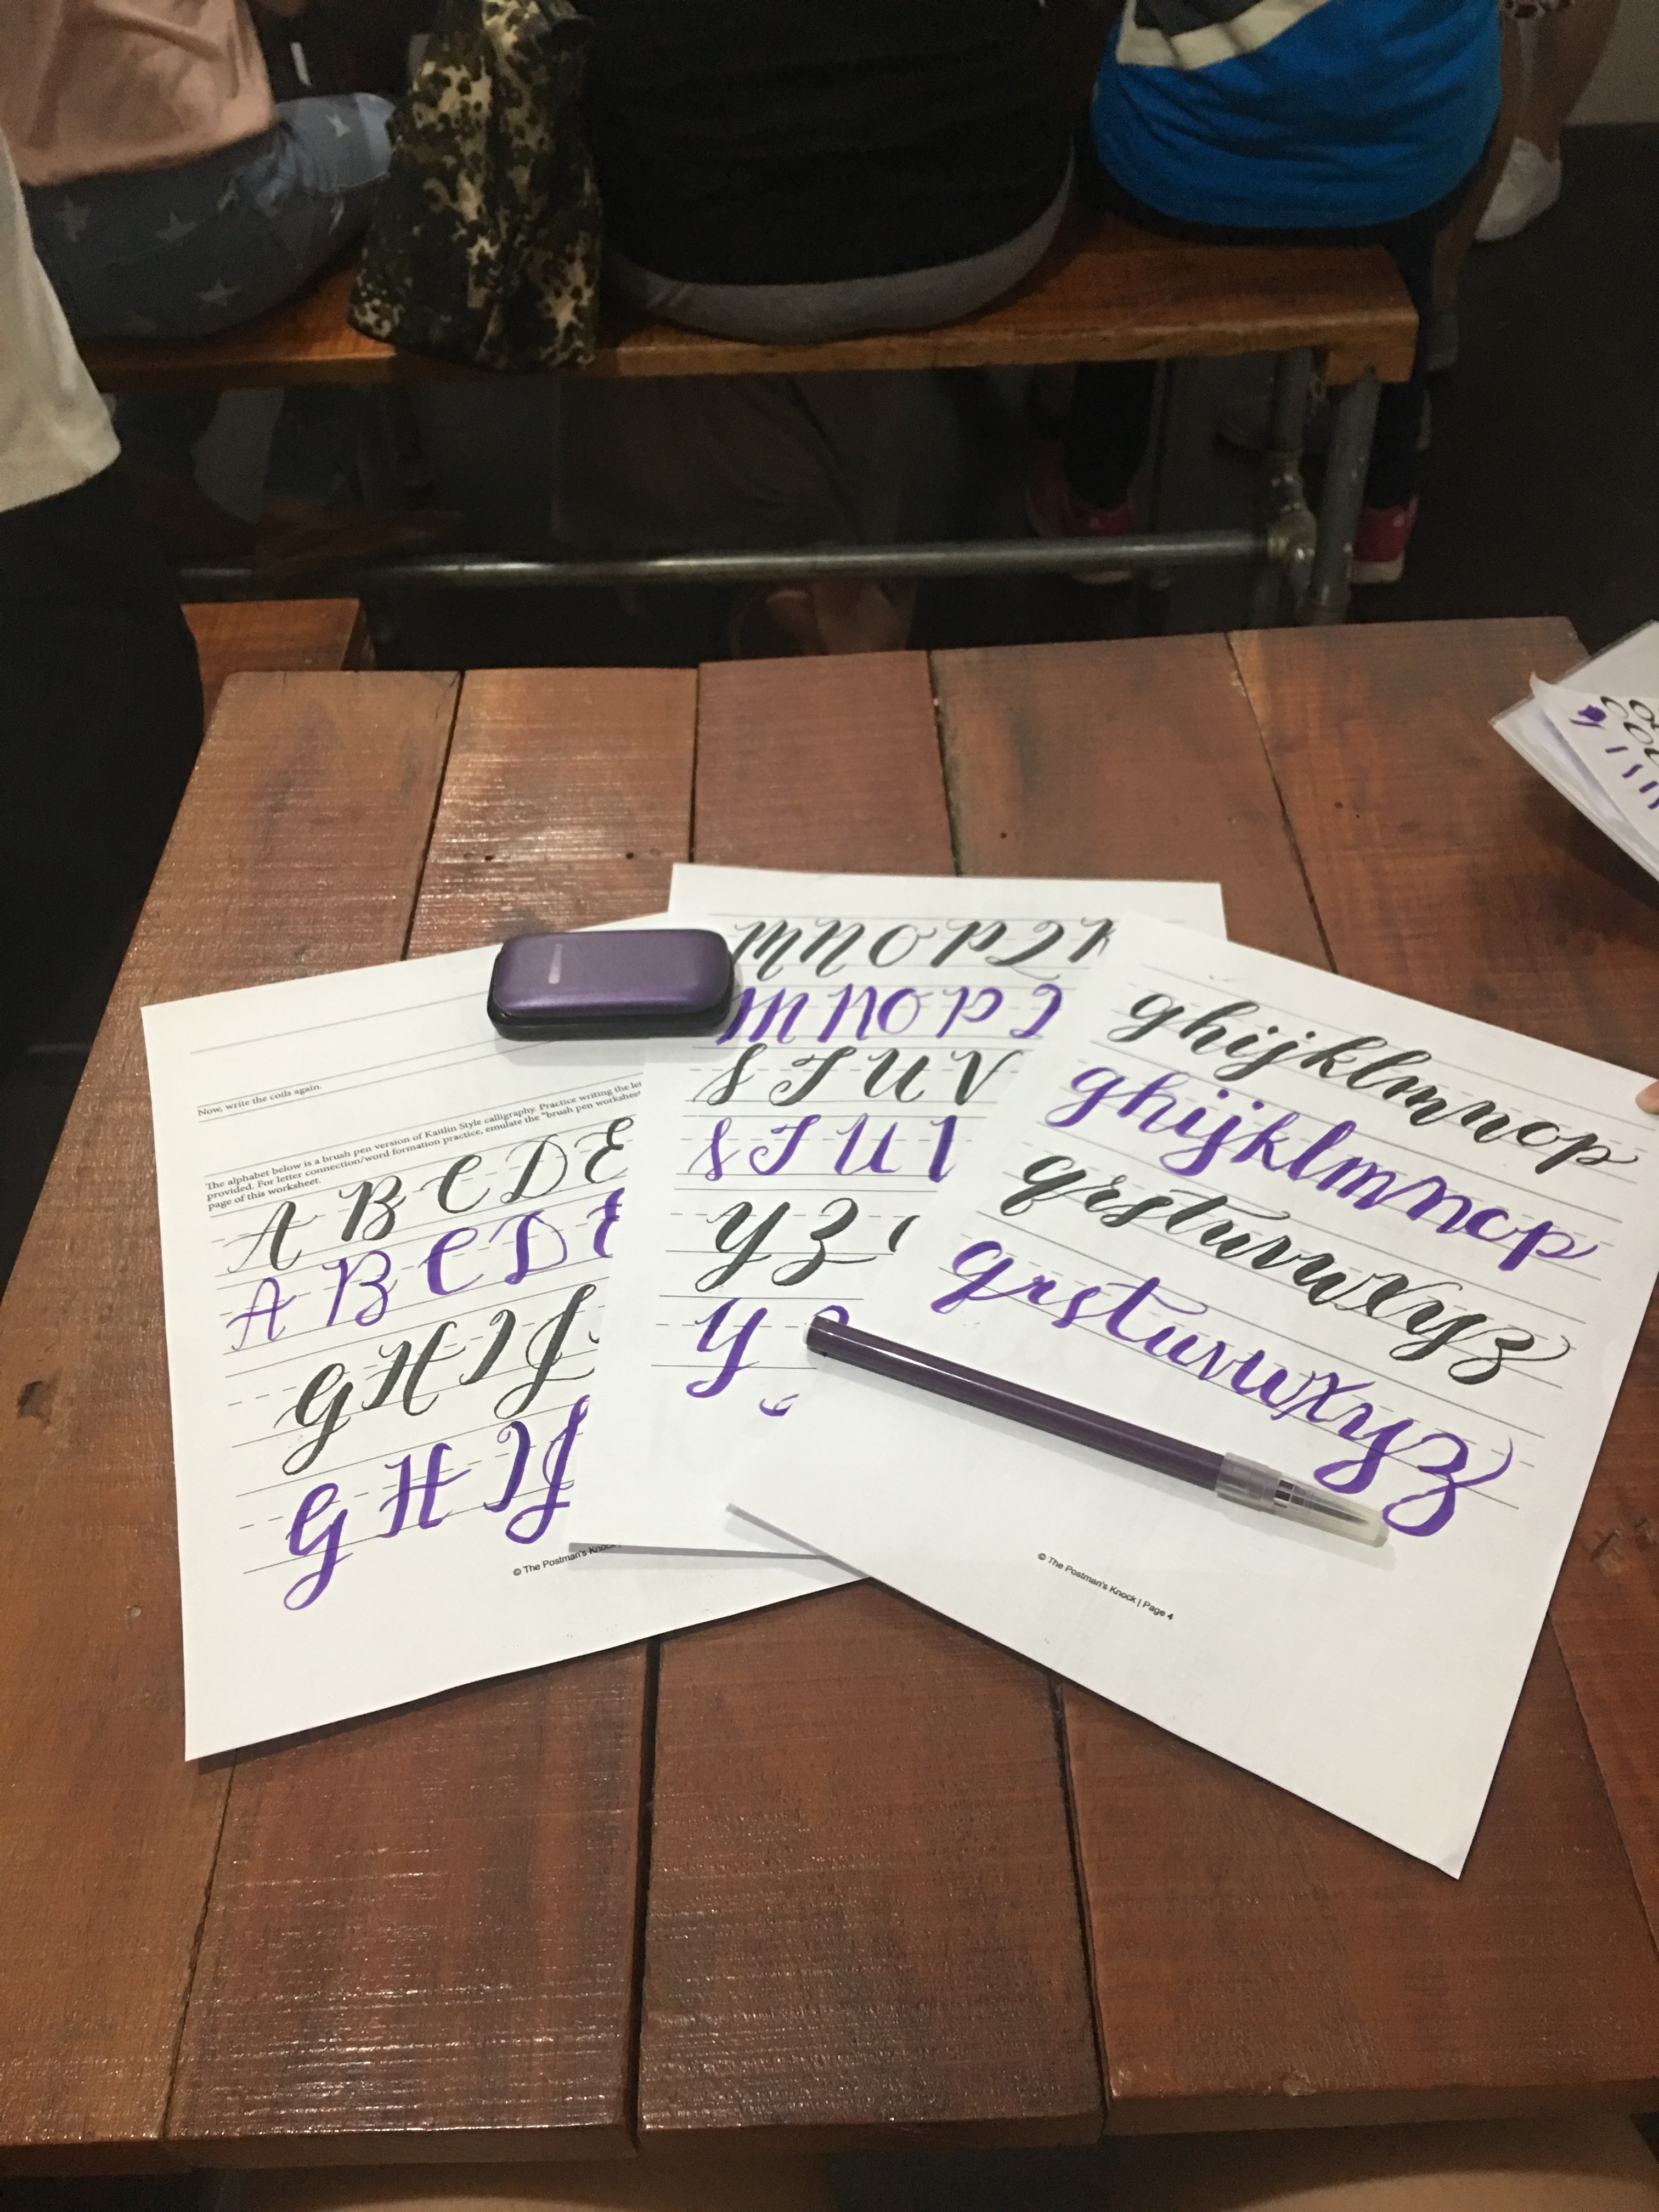 Now, write the coils again.
The alphabet below is a brush pen version of Kaitlin Style calligraphy. Practice writing the
provided. For letter connection/word formation practice, emulate the "brush pen
page of this worksheet.
A B C D E
A B C D E
G H I J
G H I J
© The Postman's Knock
M N O P Q R
M N O P Q
S T U V
S T U
Y Z
Y
ghijklmnop
ghijklmnop
qrstuvwxyz
qrstuvwxyz
© The Postman's Knock | Page 4